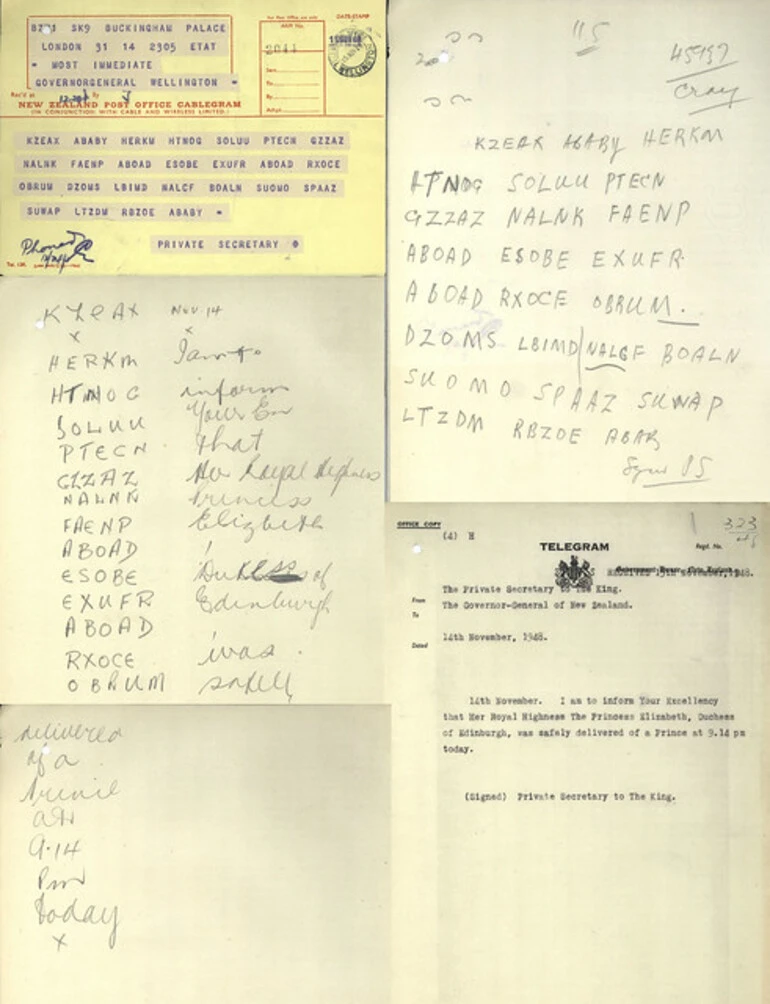 BZ71 SK9 BUCKINGHAM PALACE
LONDON 31 14 2305 ETAT
= MOST IMMEDIATE
GOVERNORGENERAL WELLINGTON =
DATE-STAMP
2044
Rec'd at By
NEW ZEALAND POST OFFICE CABLEGRAM
(IN CONJUNCTION WITH CABLE AND WIRELESS LIMITED.)
KZEAX ABABY HERKM HTNOG SOLUU PTECN GZZAZ
NALNK FAENP ABOAD ESOBE EXUFR ABOAD RXOCE
OBRUM DZOMS LBIMD NALCF BOALN SUOMO SPAAZ
SUWAP LTZDM RBZOE ABABY =
Phoned
PRIVATE SECRETARY
115
45997
Cray
KZEAX ABABY HERKM
HTNOG SOLUU PTECN
GZZAZ NALNK FAENP
ABOAD ESOBE EXUFR
ABOAD RXOCE OBRUM.
DZOMS LBIMD NALCF BOALN
SUOMO SPAAZ SUWAP
LTZDM RBZOE ABAB
PS
KZEAX Nov 14
x x
HERKM I am to
HTNOG inform
SOLUU Your Ex
PTECN that
GZZAZ Her Royal Highness
NALNN Princess
FAENP Elizabeth
ABOAD ,
ESOBE Duchess of
EXUFR Edinburgh
ABOAD
RXOCE was
OBRUM safely
delivered
of a
Prince
at
9.14
Pm
Today
x
OFFICE COPY
(4) H
323
TELEGRAM
Regd. No.
RECEIVED 15th November, 1948.
The Private Secretary to The King.
From
The Governor-General of New Zealand.
To
14th November, 1948.
Dated
14th November. I am to inform Your Excellency
that Her Royal Highness The Princess Elizabeth, Duchess
of Edinburgh, was safely delivered of a Prince at 9.14 pm
today.
(Signed) Private Secretary to The King.